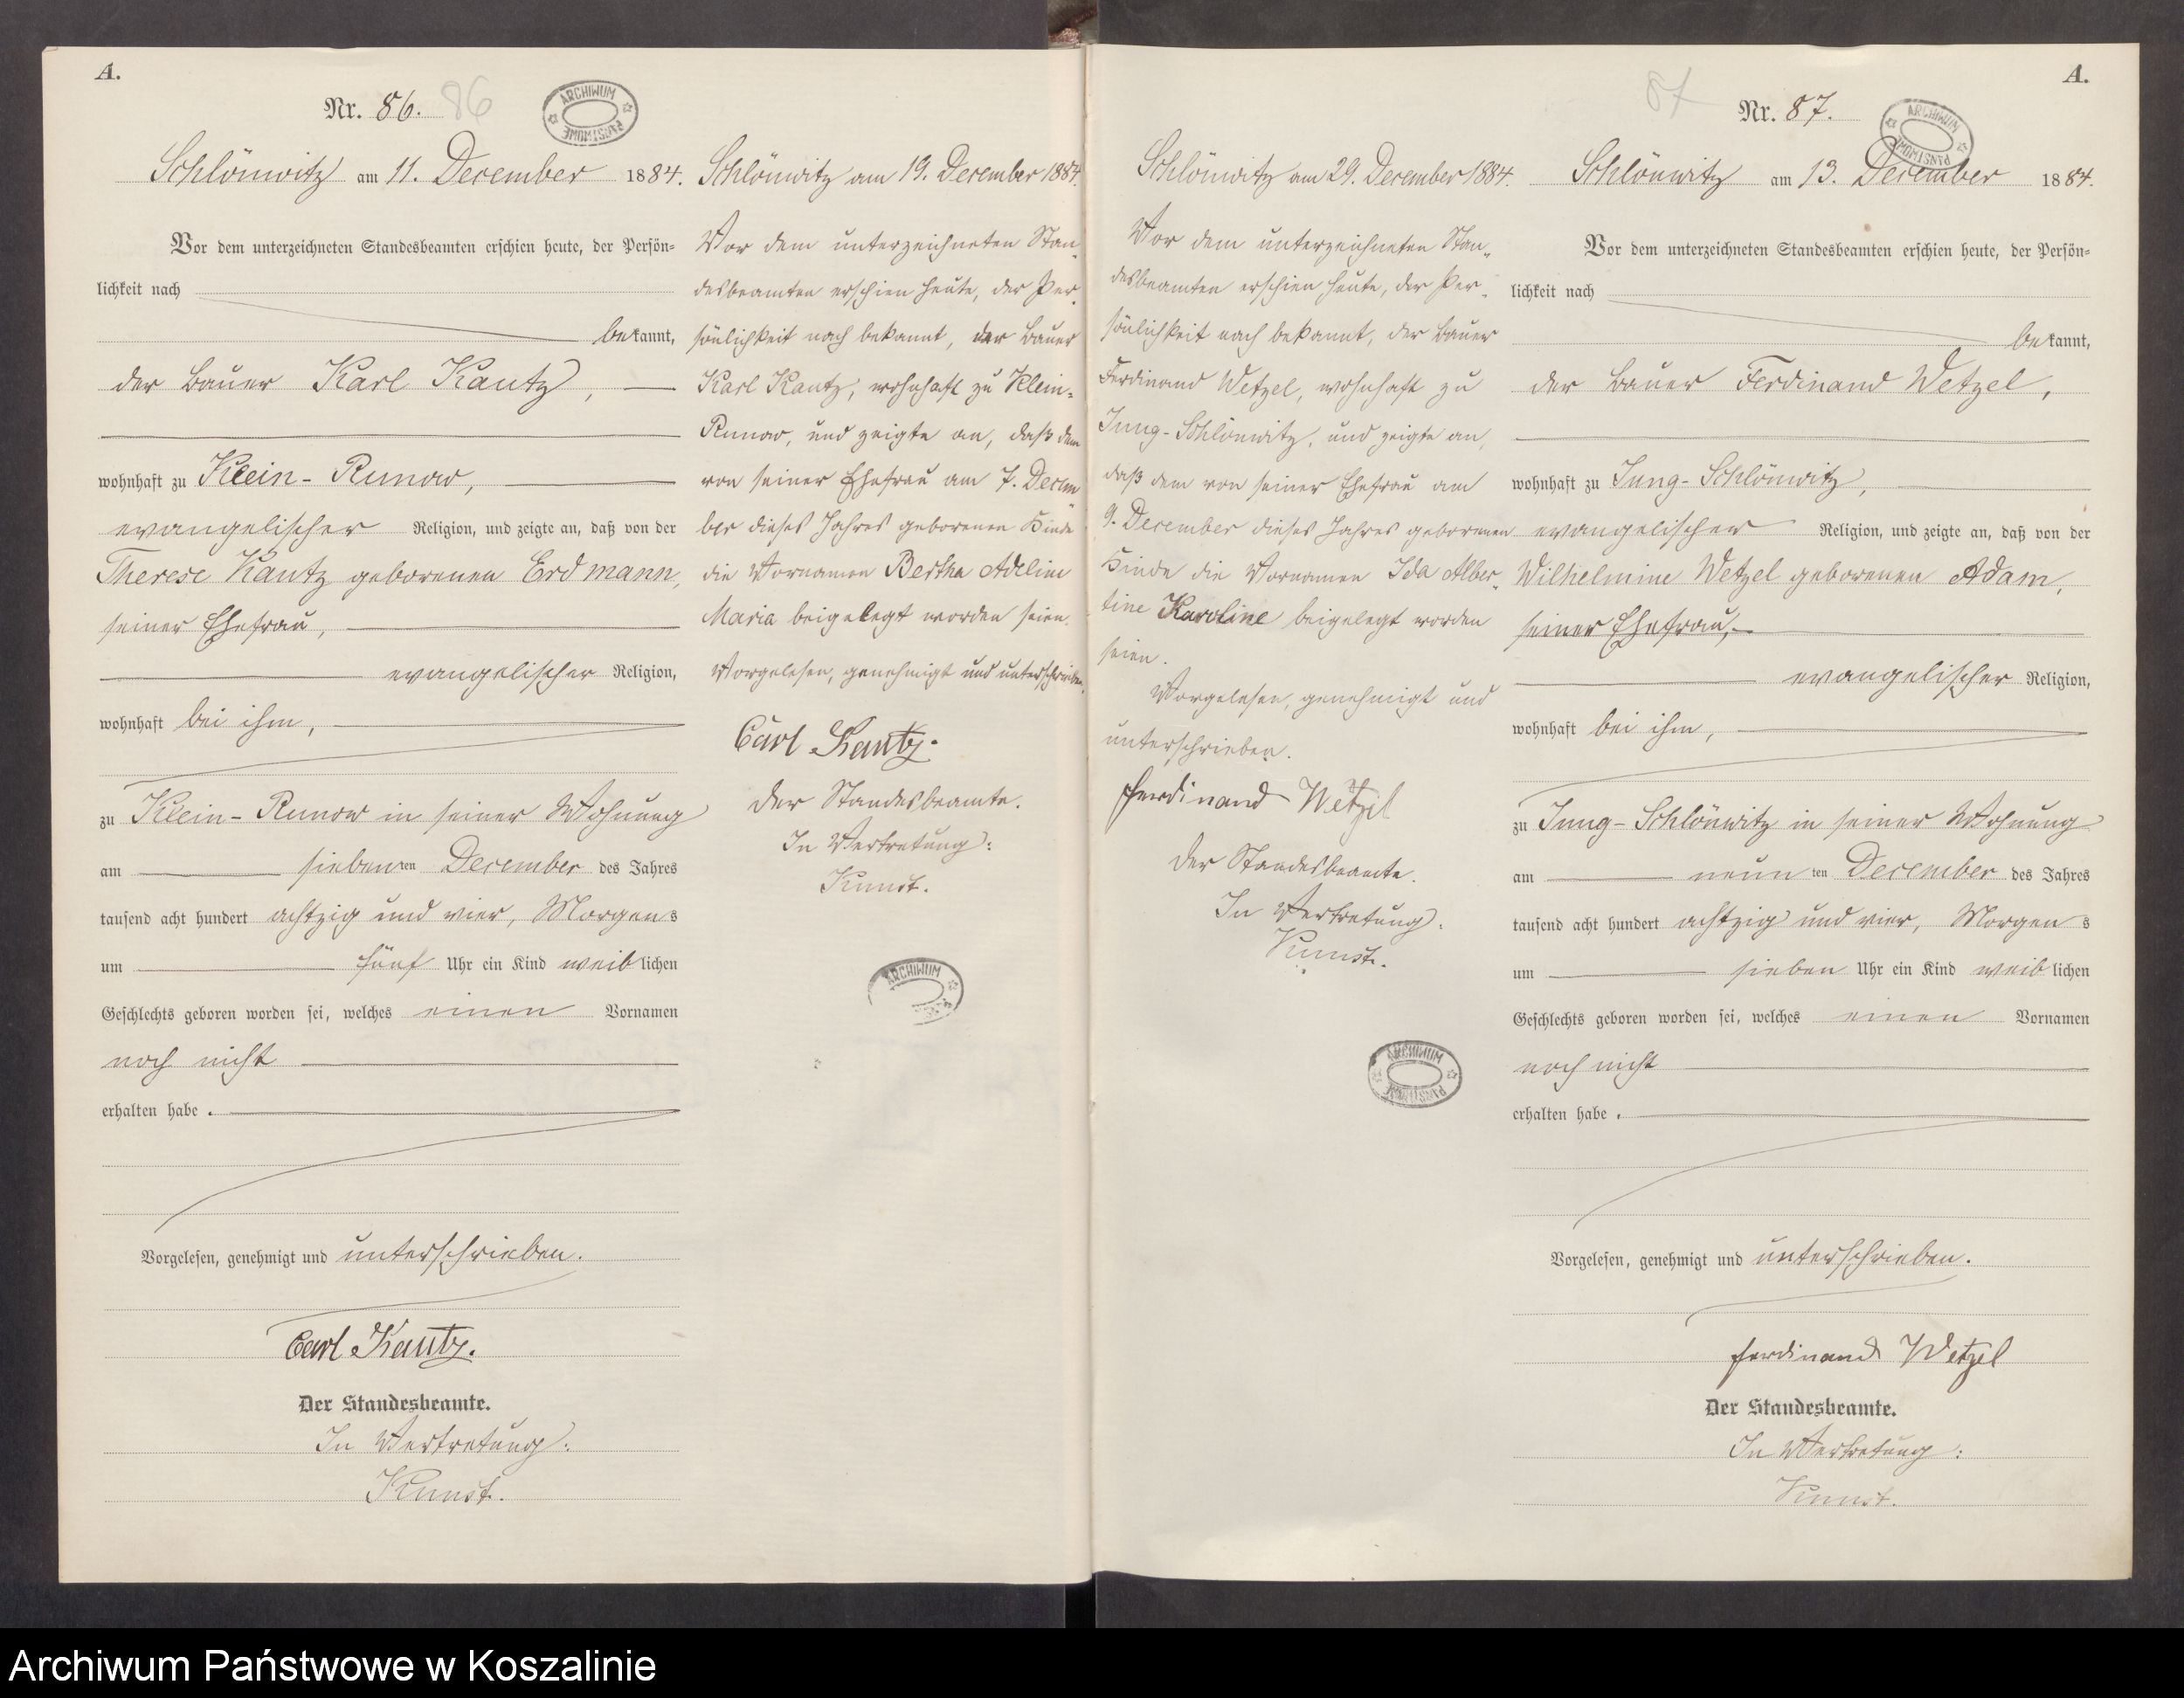 A.
Nr. 86. 86
ARCHIWUM PAŃSTWOWE
Schlönwitz am 11. December 1884.
Vor dem unterzeichneten Standesbeamten erschien heute, der Persön=
lichkeit nach
bekannt,
der Bauer Karl Kautz,
wohnhaft zu Klein-Runow,
evangelischer Religion, und zeigte an, daß von der
Therese Kautz geborenen Erdmann,
seiner Ehefrau,
evangelischer Religion,
wohnhaft bei ihm,
zu Klein-Runow in seiner Wohnung
am siebenten December des Jahres
tausend acht hundert achtzig und vier, Morgens
um fünf Uhr ein Kind weiblichen
Geschlechts geboren worden sei, welches einen Vornamen
noch nicht
erhalten habe.
Vorgelesen, genehmigt und unterschrieben.
Carl Kautz.
Der Standesbeamte.
In Vertretung:
Kunst.
Schlönwitz am 19. December 1884.
Vor dem unterzeichneten Stan-
desbeamten erschien heute, der Per-
sönlichkeit nach bekannt, der Bauer
Karl Kautz, wohnhaft zu Klein-
Runow, und zeigte an, daß dem
von seiner Ehefrau am 7. Decem
ber dieses Jahres geborenen Kinde
die Vornamen Bertha Adeline
Maria beigelegt worden seien.
Vorgelesen, genehmigt und unterschrieben.
Carl Kautz.
Der Standesbeamte.
In Vertretung:
Kunst.
ARCHIWUM
Schlönwitz am 29. December 1884.
Vor dem unterzeichneten Stan-
desbeamten erschien heute, der Per-
sönlichkeit nach bekannt, der Bauer
Ferdinand Wetzel, wohnhaft zu
Jung-Schlönwitz, und zeigte an,
daß dem von seiner Ehefrau am
9. December dieses Jahres geborenen
Kinde die Vornamen Ida Alber-
tine Karoline beigelegt worden
seien.
Vorgelesen, genehmigt und
unterschrieben.
Ferdinand Wetzel
Der Standesbeamte.
In Vertretung:
Kunst.
ARCHIWUM PAŃSTWOWE
A.
87 Nr. 87.
ARCHIWUM PAŃSTWOWE
Schlönwitz am 13. December 1884.
Vor dem unterzeichneten Standesbeamten erschien heute, der Persön=
lichkeit nach
bekannt,
der Bauer Ferdinand Wetzel,
wohnhaft zu Jung-Schlönwitz,
evangelischer Religion, und zeigte an, daß von der
Wilhelmine Wetzel geborenen Adam,
seiner Ehefrau,
evangelischer Religion,
wohnhaft bei ihm,
zu Jung-Schlönwitz in seiner Wohnung
am neunten December des Jahres
tausend acht hundert achtzig und vier, Morgens
um sieben Uhr ein Kind weiblichen
Geschlechts geboren worden sei, welches einen Vornamen
noch nicht
erhalten habe.
Vorgelesen, genehmigt und unterschrieben.
Ferdinand Wetzel
Der Standesbeamte.
In Vertretung:
Kunst.
Archiwum Państwowe w Koszalinie